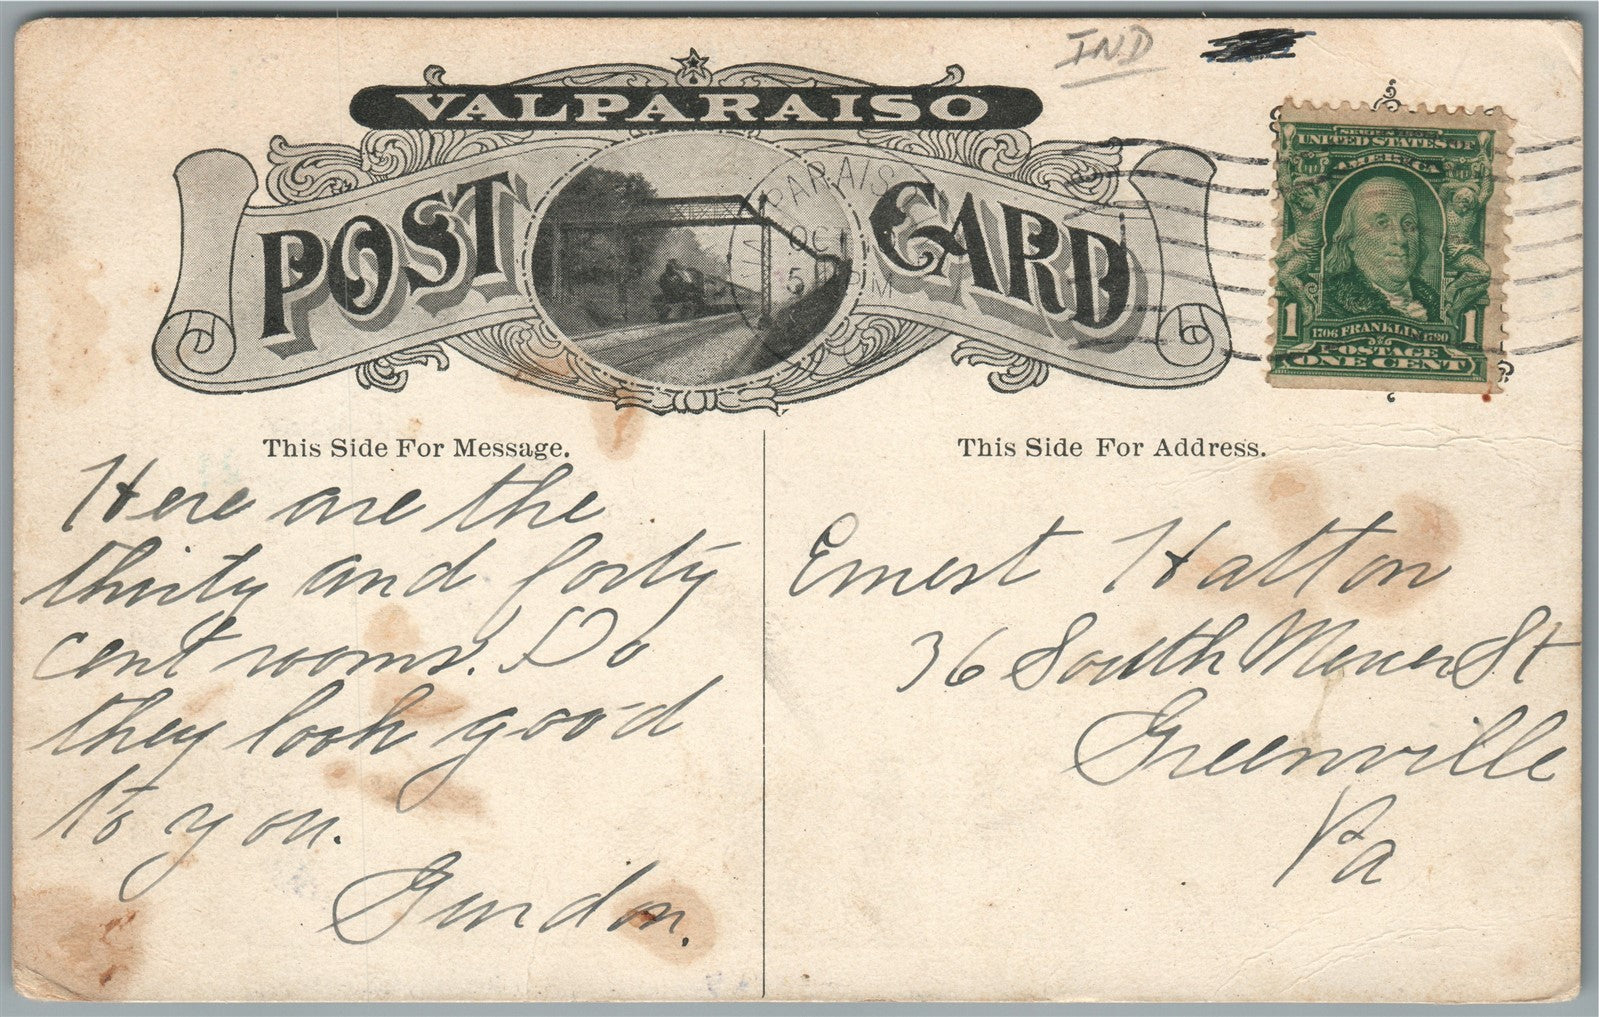 IND
VALPARAISO
POST CARD
VALPARAIS
OCT
5 PM
SERIES 1902
UNITED STATES OF
AMERICA
1 1706 FRANKLIN 1790 1
POSTAGE
ONE CENT
This Side For Message.
Here are the
thirty and forty
cent rooms. Do
they look good
to you.
Gurdon.
This Side For Address.
Ernest Hatton
36 South Mercer St
Greenville
Pa